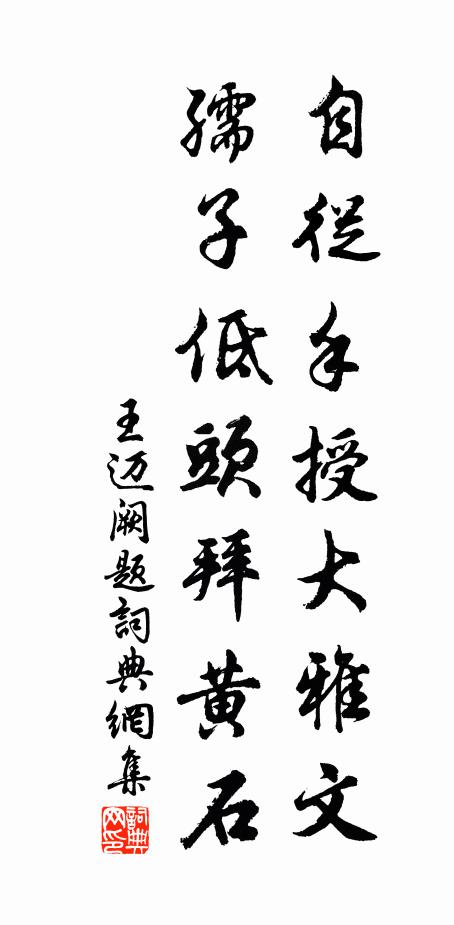 自從手授大雅文
孺子低頭拜黃石
王迈阙题詞典網集
詞典网印